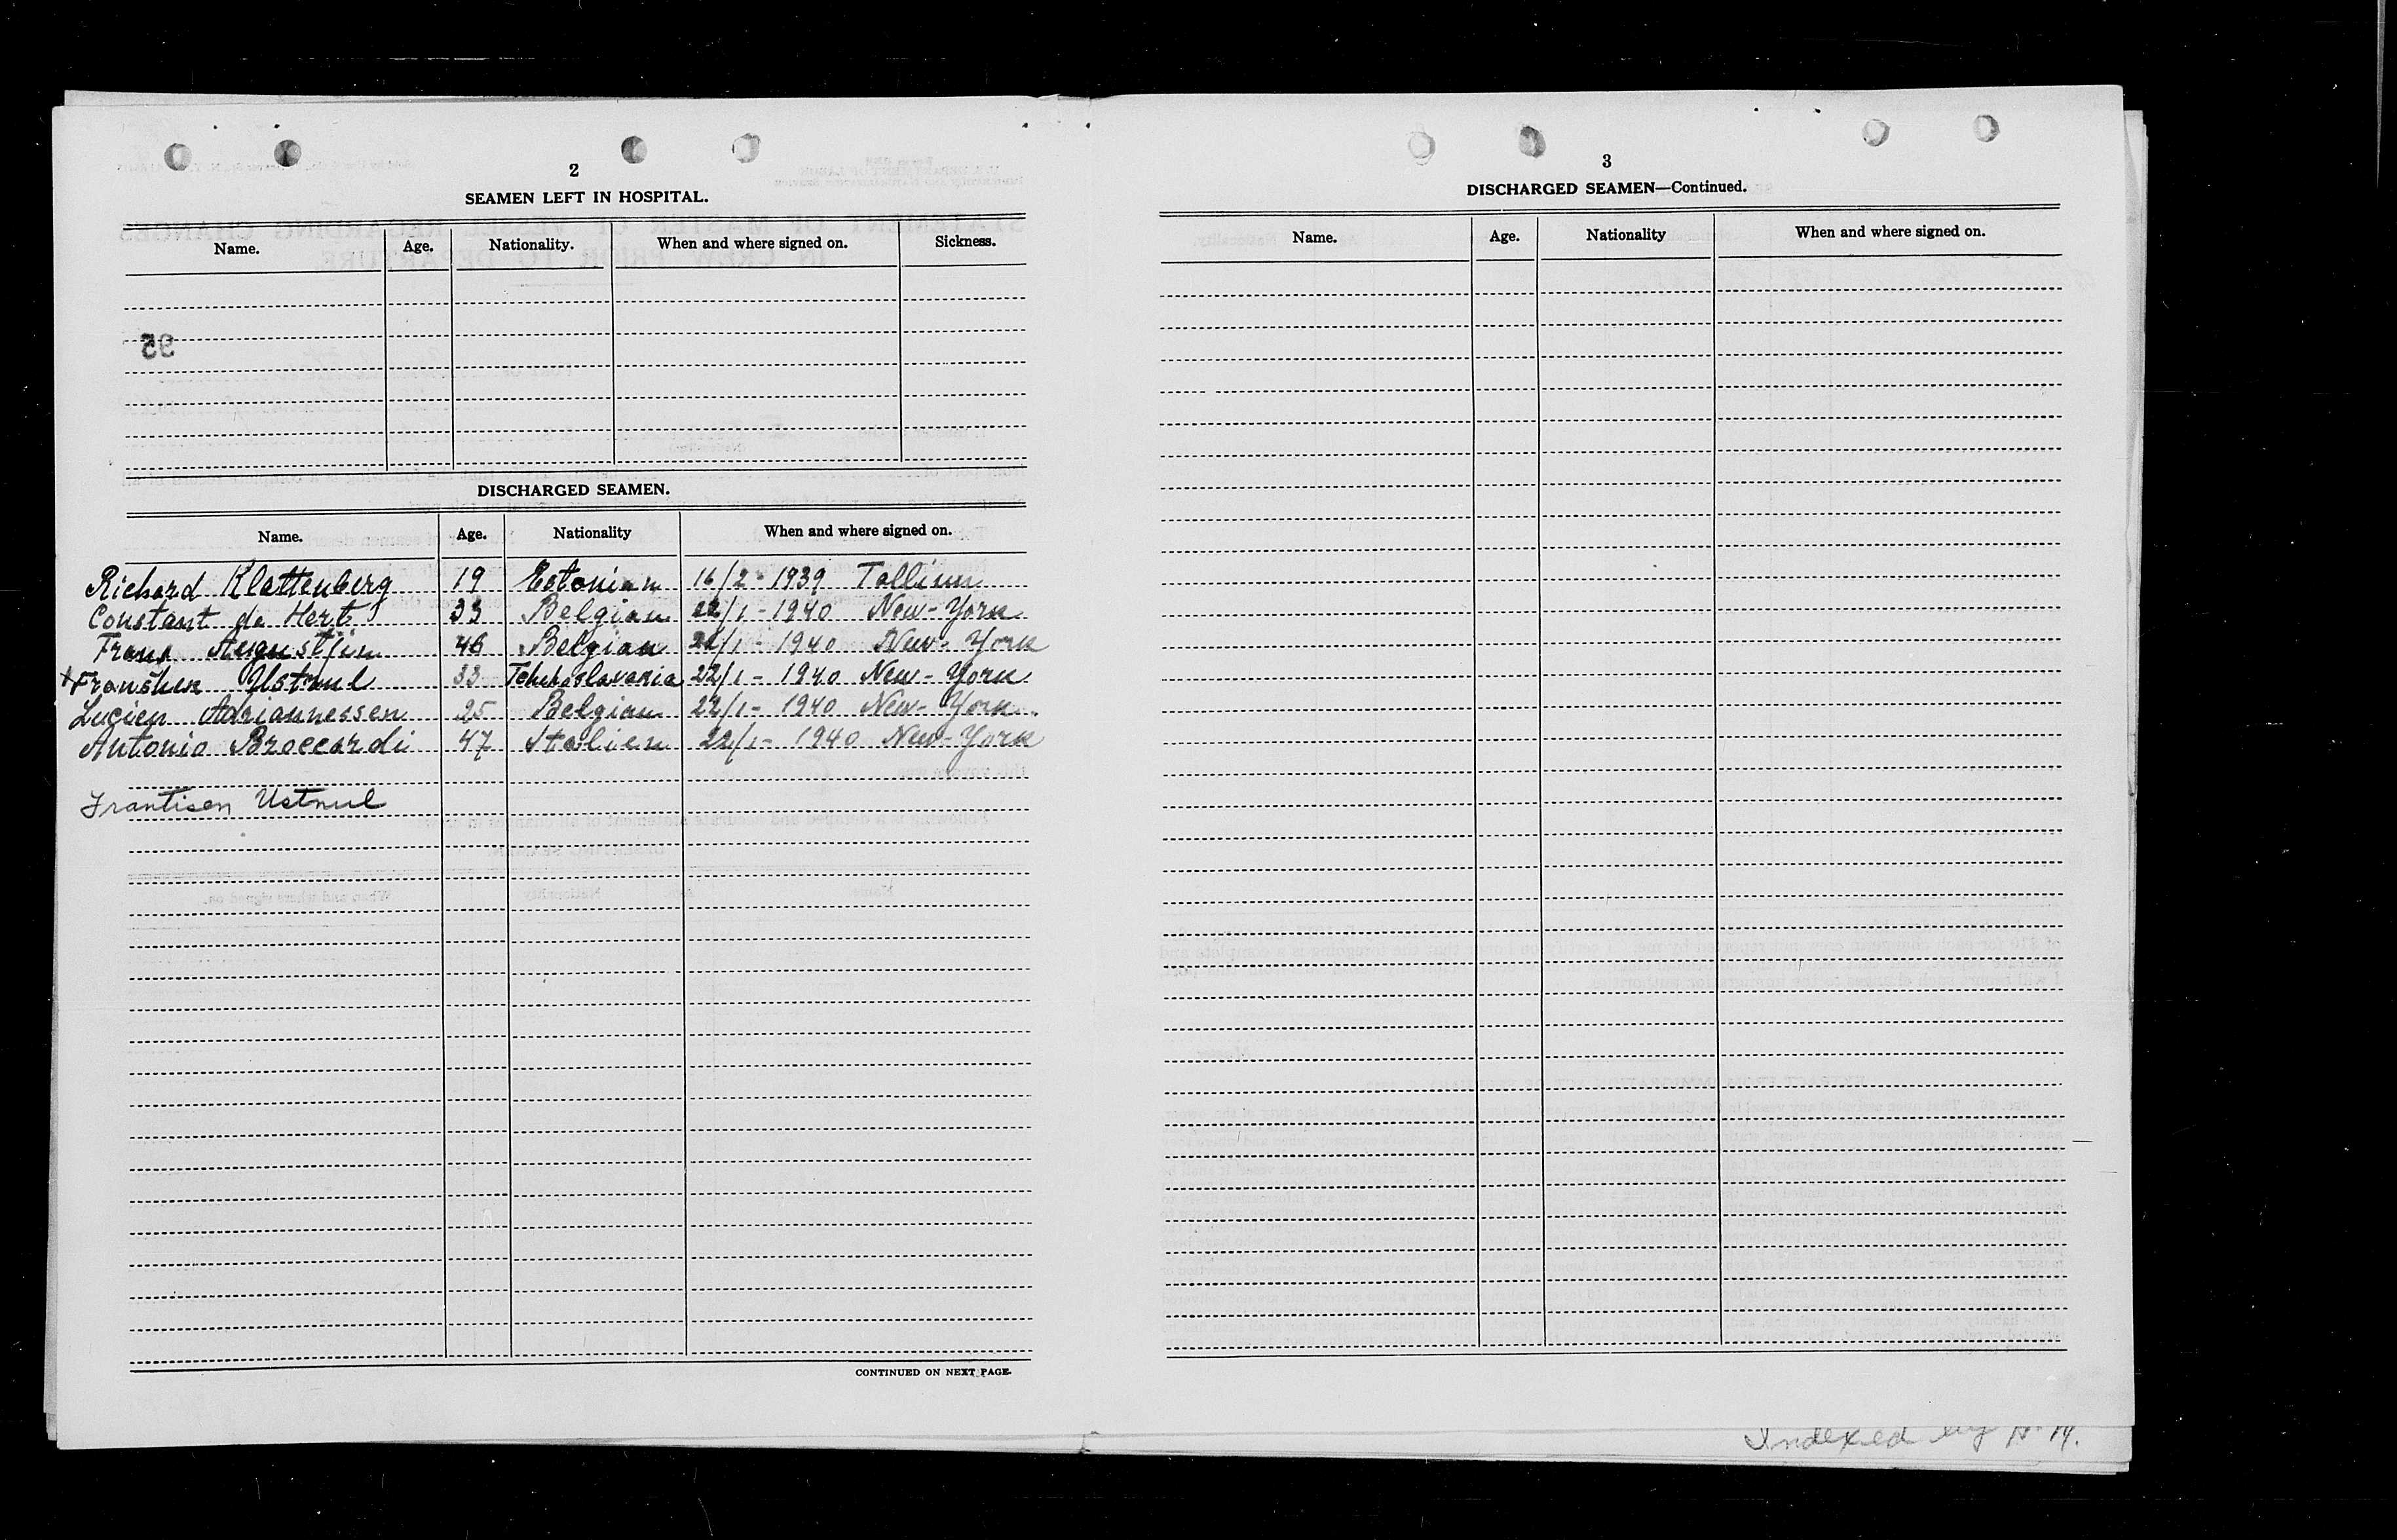 2
SEAMEN LEFT IN HOSPITAL.
Name. Age. Nationality. When and where signed on. Sickness.
95
DISCHARGED SEAMEN.
Name. Age. Nationality When and where signed on.
Richard Klettenberg 19 Estonian 16/2-1939 Tallinn
Constant de Hert 33 Belgian 22/1-1940 New-York
Frans Augustijn 46 Belgian 22/1-1940 New-York
Ustrnul 33 22/1-1940 New-York
Lucien Adriannessen 25 Belgian 22/1-1940 New-York
Antonio Broccardi 47 Italien 22/1-1940 New-York
Frantisen Ustnul
CONTINUED ON NEXT PAGE.
3
DISCHARGED SEAMEN—Continued.
Name. Age. Nationality When and where signed on.
Indexed by